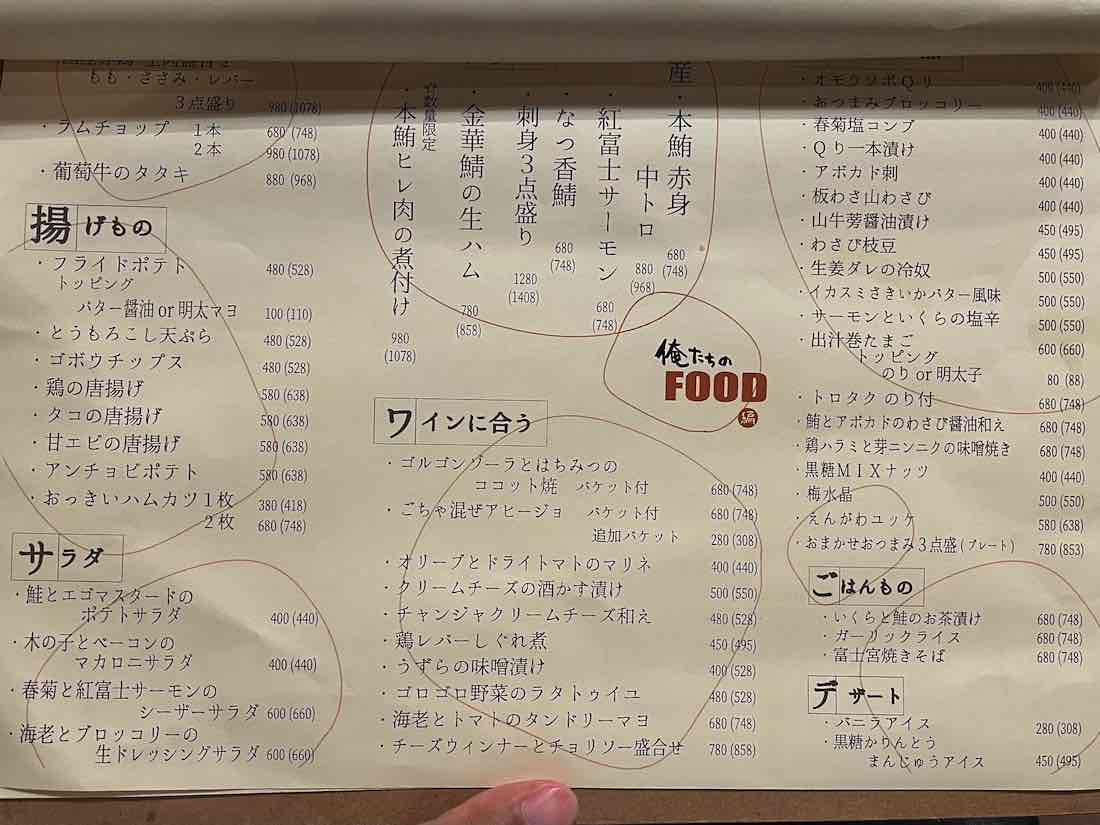 もも・ささみ・レバー
3点盛り 980 (1078)
・ラムチョップ 1本 680 (748)
2本 980 (1078)
・葡萄牛のタタキ 880 (968)
揚げもの
・フライドポテト 480 (528)
トッピング
バター醤油 or 明太マヨ 100 (110)
・とうもろこし天ぷら 480 (528)
・ゴボウチップス 480 (528)
・鶏の唐揚げ 580 (638)
・タコの唐揚げ 580 (638)
・甘エビの唐揚げ 580 (638)
・アンチョビポテト 580 (638)
・おっきいハムカツ1枚 380 (418)
2枚 680 (748)
サラダ
・鮭とエゴマスタードの
ポテトサラダ 400 (440)
・木の子とベーコンの
マカロニサラダ 400 (440)
・春菊と紅富士サーモンの
シーザーサラダ 600 (660)
・海老とブロッコリーの
生ドレッシングサラダ 600 (660)
産・本鮪 赤身 680 (748)
中トロ 880 (968)
・紅富士サーモン 680 (748)
・なつ香鯖 680 (748)
・刺身3点盛り 1280 (1408)
・金華鯖の生ハム 780 (858)
数量限定
・本鮪ヒレ肉の煮付け 980 (1078)
俺たちの
FOOD
編
ワインに合う
・ゴルゴンゾーラとはちみつの
ココット焼 バケット付 680 (748)
・ごちゃ混ぜアヒージョ バケット付 680 (748)
追加バケット 280 (308)
・オリーブとドライトマトのマリネ 400 (440)
・クリームチーズの酒かす漬け 500 (550)
・チャンジャクリームチーズ和え 480 (528)
・鶏レバーしぐれ煮 450 (495)
・うずらの味噌漬け 400 (528)
・ゴロゴロ野菜のラタトゥイユ 480 (528)
・海老とトマトのタンドリーマヨ 680 (748)
・チーズウィンナーとチョリソー盛合せ 780 (858)
・オモウツボQリ 400 (440)
・おつまみブロッコリー 400 (440)
・春菊塩コンブ 400 (440)
・Qり一本漬け 400 (440)
・アボカド刺 400 (440)
・板わさ山わさび 400 (440)
・山牛蒡醤油漬け 450 (495)
・わさび枝豆 450 (495)
・生姜ダレの冷奴 500 (550)
・イカスミさきいかバター風味 500 (550)
・サーモンといくらの塩辛 500 (550)
・出汁巻たまご 600 (660)
トッピング
のり or 明太子 80 (88)
・トロタク のり付 680 (748)
・鮪とアボカドのわさび醤油和え 680 (748)
・鶏ハラミと芽ニンニクの味噌焼き 680 (748)
・黒糖MIXナッツ 400 (440)
・梅水晶 500 (550)
・えんがわユッケ 580 (638)
・おまかせおつまみ3点盛 (プレート) 780 (853)
ごはんもの
・いくらと鮭のお茶漬け 680 (748)
・ガーリックライス 680 (748)
・富士宮焼きそば 680 (748)
デザート
・バニラアイス 280 (308)
・黒糖かりんとう
まんじゅうアイス 450 (495)